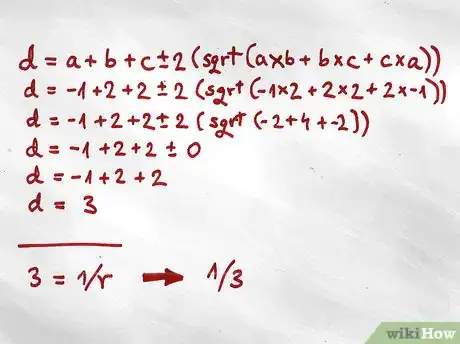 d = a + b + c ± 2 (sqrt (a×b + b×c + c×a))
d = -1 + 2 + 2 ± 2 (sqrt (-1×2 + 2×2 + 2×-1))
d = -1 + 2 + 2 ± 2 (sqrt (-2 + 4 + -2))
d = -1 + 2 + 2 ± 0
d = -1 + 2 + 2
d = 3
3 = 1/r → 1/3
wikiHow